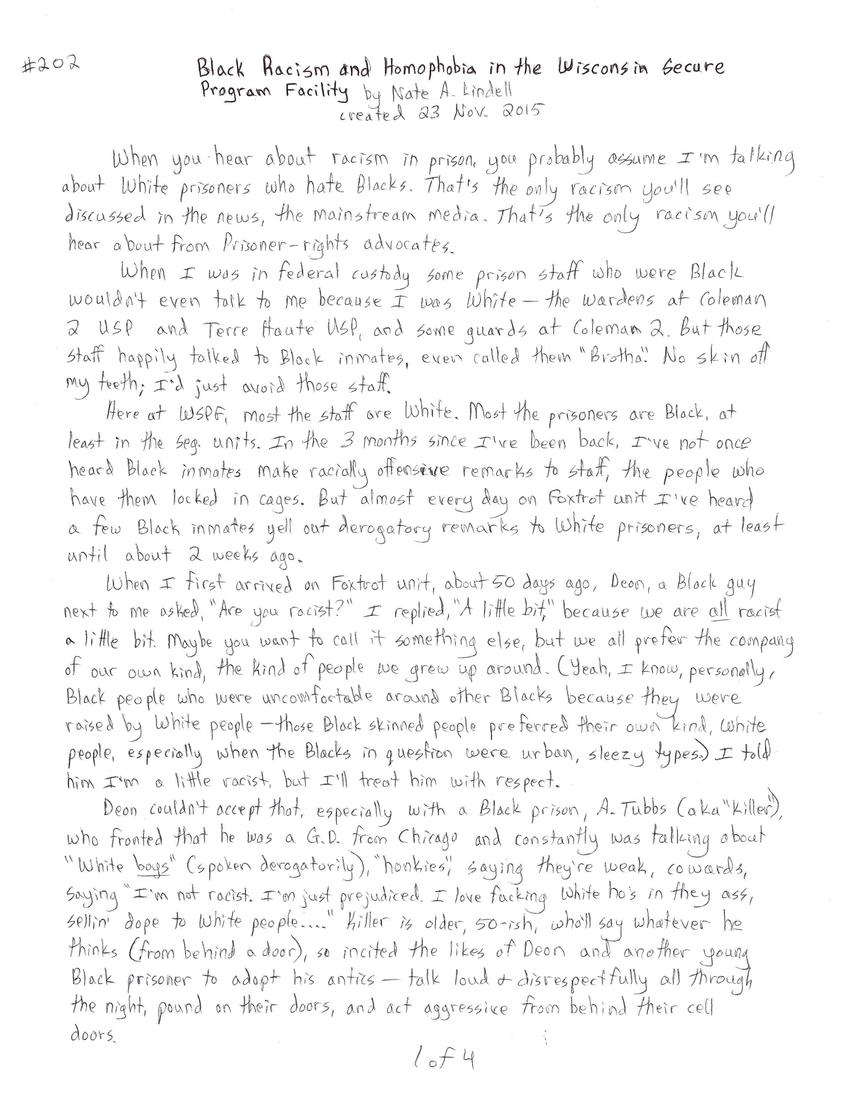 #202
Black Racism and Homophobia in the Wisconsin Secure
Program Facility by Nate A. Lindell
created 23 Nov. 2015
When you hear about racism in prison, you probably assume I'm talking
about White prisoners who hate Blacks. That's the only racism you'll see
discussed in the news, the mainstream media. That's the only racism you'll
hear about from Prisoner-rights advocates.
When I was in federal custody some prison staff who were Black
wouldn't even talk to me because I was White — the wardens at Coleman
2 USP and Terre Haute USP, and some guards at Coleman 2. But those
staff happily talked to Black inmates, even called them "Brotha". No skin off
my teeth; I'd just avoid those staff.
Here at WSPF, most the staff are White. Most the prisoners are Black, at
least in the seg. units. In the 3 months since I've been back, I've not once
heard Black inmates make racially offensive remarks to staff, the people who
have them locked in cages. But almost every day on Foxtrot unit I've heard
a few Black inmates yell out derogatory remarks to White prisoners, at least
until about 2 weeks ago.
When I first arrived on Foxtrot unit, about 50 days ago, Deon, a Black guy
next to me asked, "Are you racist?" I replied, "A little bit," because we are all racist
a little bit. Maybe you want to call it something else, but we all prefer the company
of our own kind, the kind of people we grew up around. (Yeah, I know, personally,
Black people who were uncomfortable around other Blacks because they were
raised by White people — those Black skinned people preferred their own kind, White
people, especially when the Blacks in question were urban, sleezy types.) I told
him I'm a little racist, but I'll treat him with respect.
Deon couldn't accept that, especially with a Black prison, A. Tubbs (aka "Killer"),
who fronted that he was a G.D. from Chicago and constantly was talking about
"White boys" (spoken derogatorily), "honkies", saying they're weak, cowards,
saying "I'm not racist. I'm just prejudiced. I love fucking White ho's in they ass,
sellin' dope to White people...." Killer is older, 50-ish, who'll say whatever he
thinks (from behind a door), so incited the likes of Deon and another young
Black prisoner to adopt his antics — talk loud & disrespectfully all through
the night, pound on their doors, and act aggressive from behind their cell
doors.
1 of 4